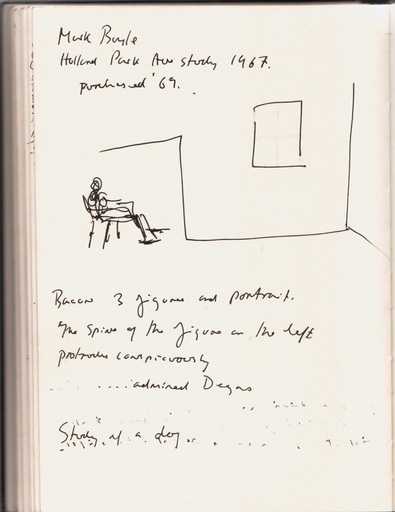 Mark Boyle
Holland Park Ave study 1967.
purchased '69.
Bacon 3 figures and portrait.
The spine of the figure on the left
protrudes conspicuously
.... admired Degas
Study of a dog.